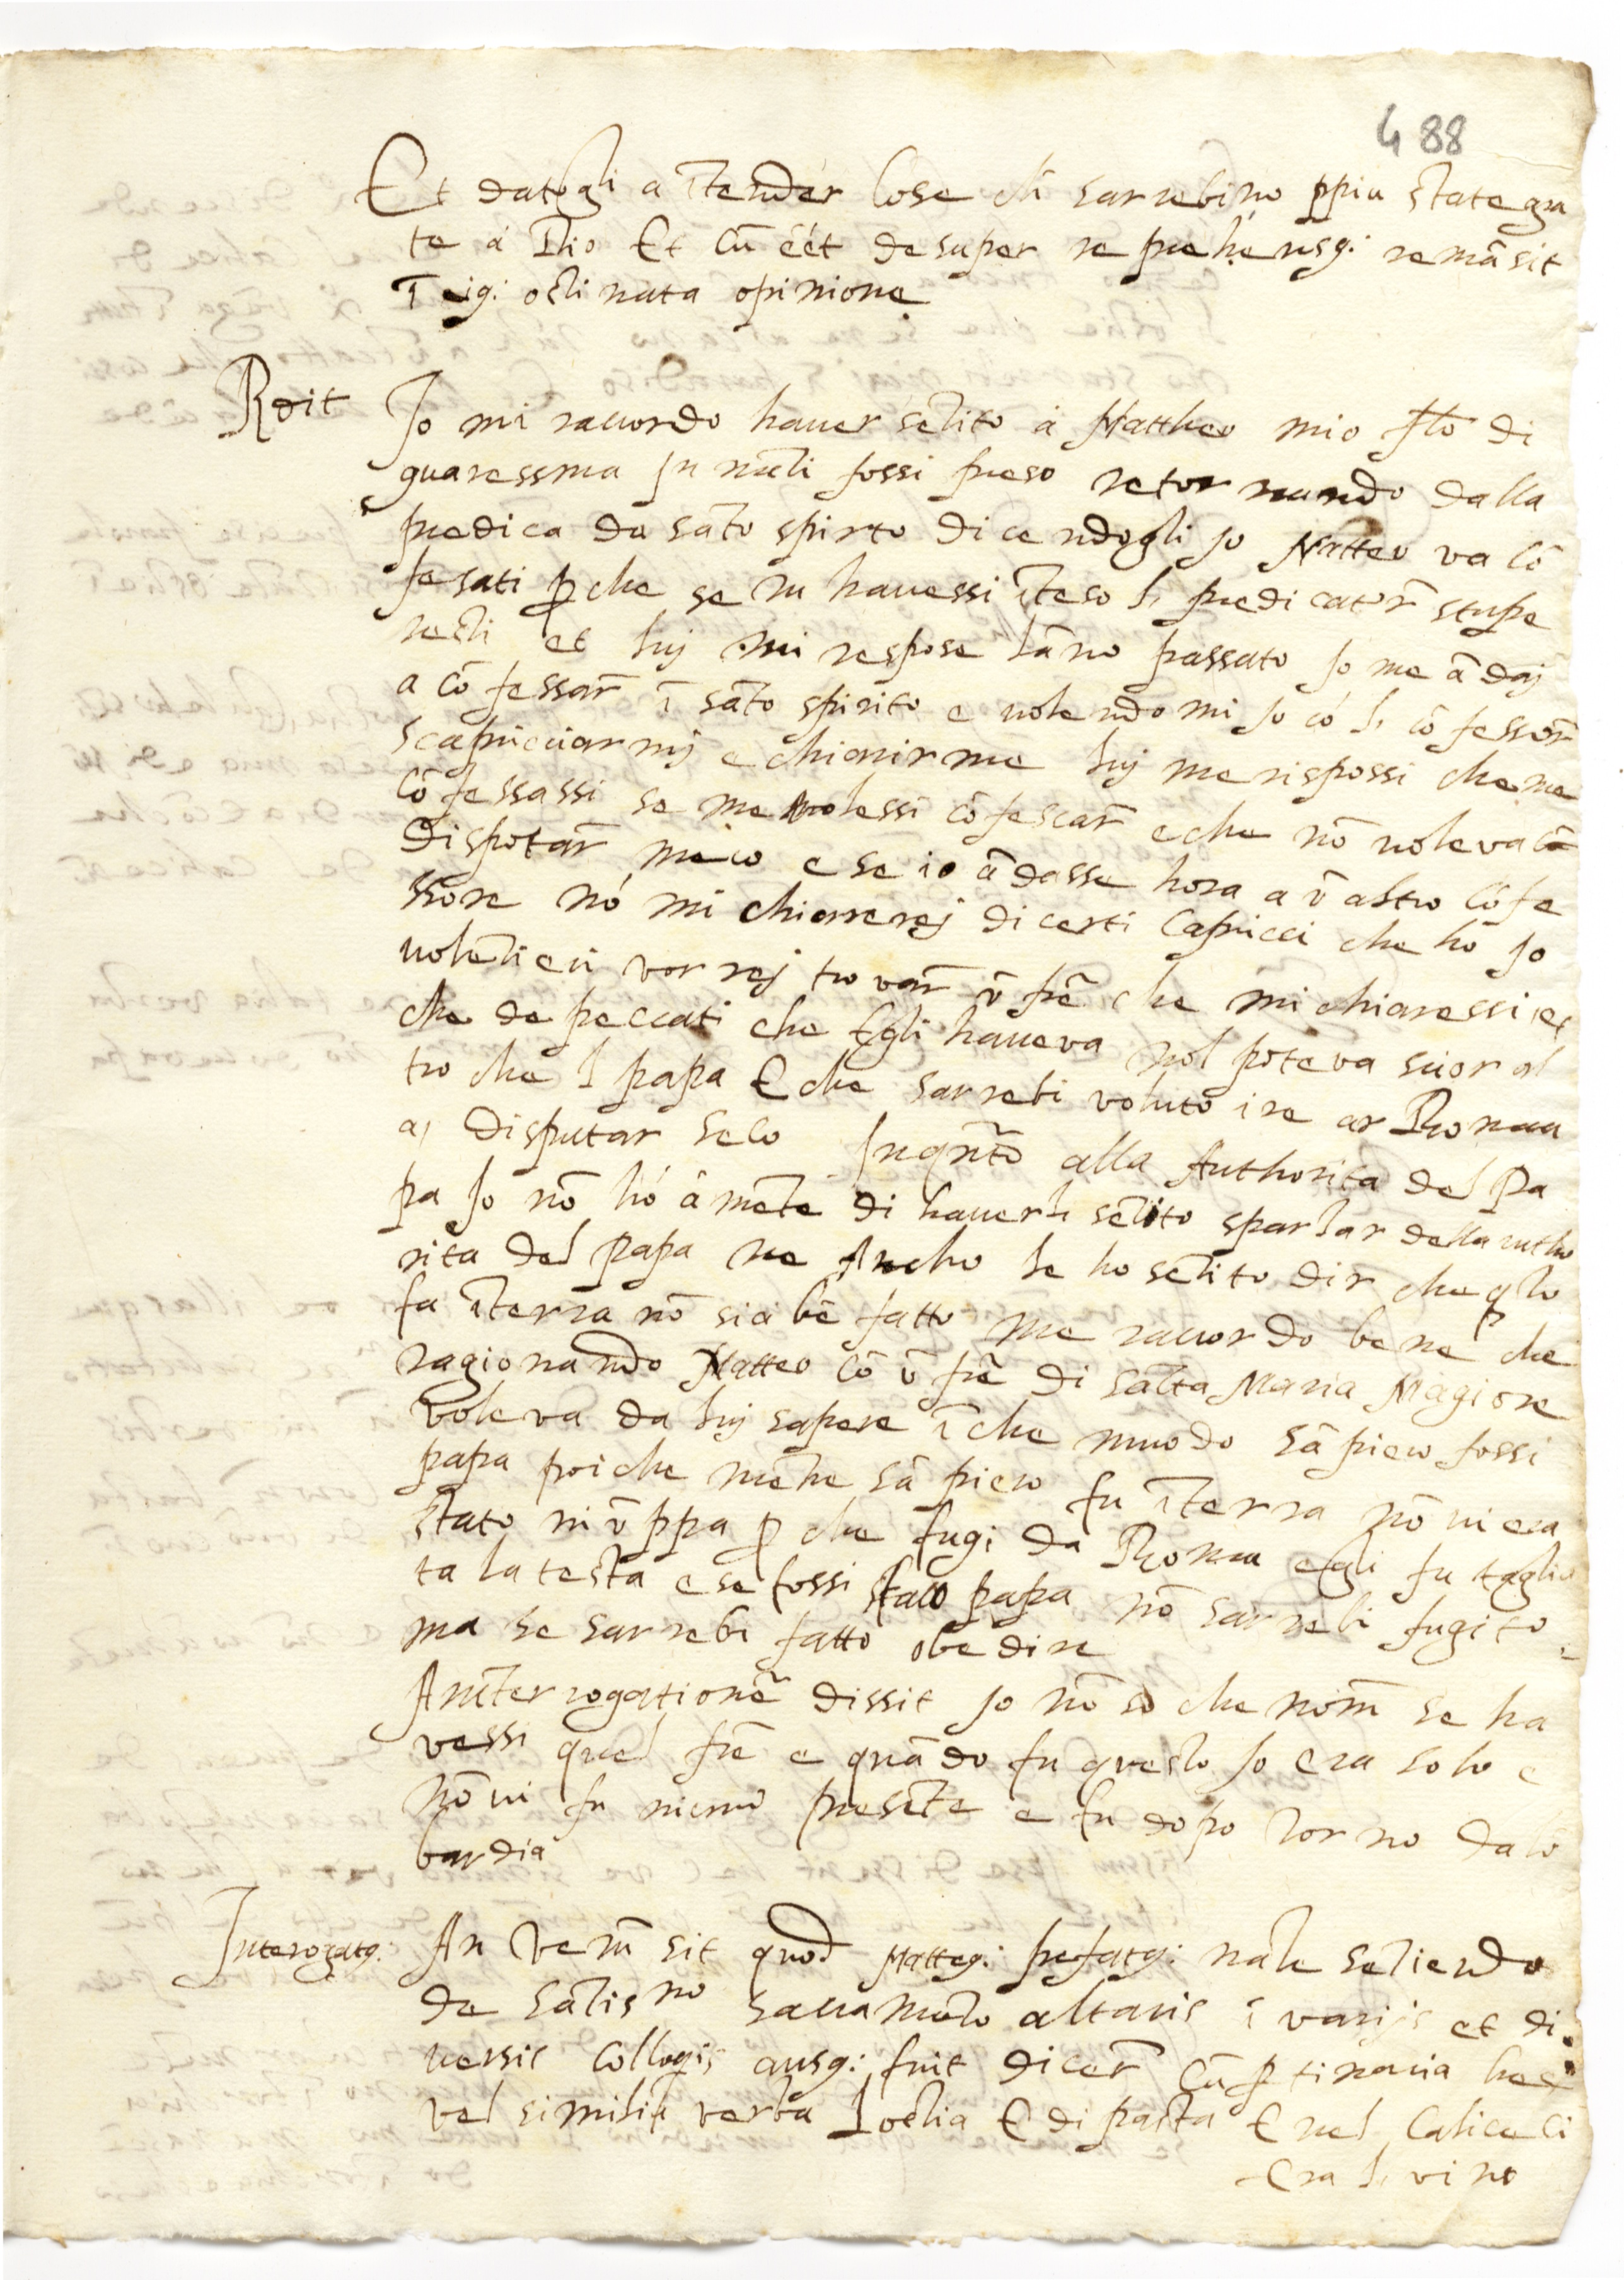 488
Et datogli a ītender cose ch sarrebino ppiu state gra
te á Dio Et cū eét desuper reprehensg: remāsit
ī eig: ostinata opinione
Rdit Jo mi raccordo haver sētito á Mattheo mio flo di
quaressma jn nāti fossi preso retornando dalla
predica da sāto spirto dicendogli jo Matteo va cō
fesati p che se tu havessi īteso il predicator̄ stupe
resti et luj mi respose lāno passato jo me ādaj
a cōfessar̄ ī sāto spirito e volendomi jo có il cōfessor̄
scapricciarmj e chiarirme luj me rispossi che me
cōfessassi se me volessi cōfescar̄ e che nō voleva
disputar̄ meco e se io ādasse hora a ū altro cōfe
ssore nó mi chiarerej di certi capricci che hó jo
volētieri vorrej trovar̄ ū frē che mi chiaressi et
che de peccati che Egli haveva nol poteva scior al
tro che l papa E che sarrebi voluto ire a Roma
a disputar seco Jnqnto alla Authorita del Pa
pa Jo nō hó á mēte di haverli sētito sparlar della utho
rita del Papa ne Ancho le ho sētito dir̄ che qlo
fa īterra nō sia bē fatto me raccordo bene che
ragionando Matteo cō ū frē di sāta Maria Magiore
voleva da luj sapere ī che muodo sā piero fossi
papa poi che mētre sā piero fu īterra nō vi era
stato niū ppa p che fugi da Roma e gli fu taglia
ta la testa e se fossi stato papa nō sarrebi fugito
ma se sarrebi fatto obedire
Ad īterrogationē dissit Jo nō so che nom̄ se ha
vessi quel frē e quādo fu questo jo era solo e
nō vi fu niuno presēte e fu dopo torno da lō
bardia
Interogatg: An verū sit quod Matteg: prefatg: male sētiendo
de sātis mo sacramēto altaris ī varijs et di
versis colloqijs ausg: fuit dicer̄ cū ptinacia hec
vel similia verba l ostia E di pasta E nel calice ci
era il vino